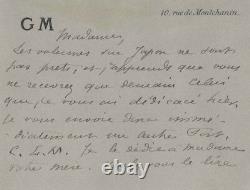 GM
10, rue de Montchanin
Madame,
Les volumes sur Japon ne sont
pas prets, et j'apprends que vous
ne recevrez que demain celui
que je vous ai dédicacé hier,
je vous envoie donc immé-
diatement un autre Fort
C. L. M. Je le dédie à madame
votre mère. vous le lire